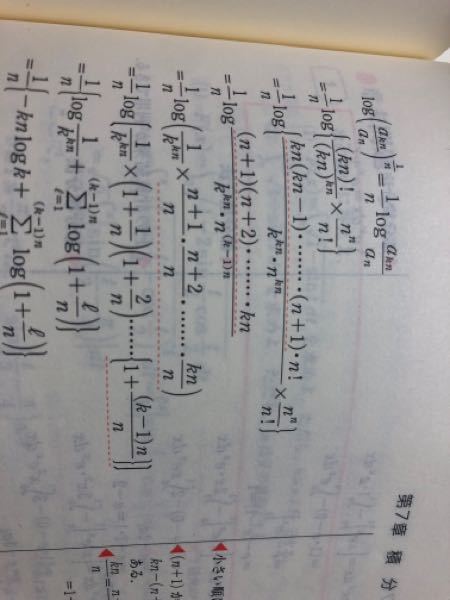 第7章 積 分
log(a_{kn}/a_n)^{1/n} = 1/n log a_{kn}/a_n
= 1/n log{(kn)!/(kn)^{kn} × n^n/n!}
= 1/n log{kn(kn−1)·······(n+1)·n!/k^{kn}·n^{kn} × n^n/n!}
= 1/n log (n+1)(n+2)·······kn/k^{kn}·n^{(k−1)n}
= 1/n log(1/k^{kn} × n+1/n · n+2/n ······· kn/n)
= 1/n log{1/k^{kn} × (1+1/n)(1+2/n)······{1+(k−1)n/n}}
= 1/n{log 1/k^{kn} + Σ_{ℓ=1}^{(k−1)n} log(1+ℓ/n)}
= 1/n{−kn log k + Σ_{ℓ=1}^{(k−1)n} log(1+ℓ/n)}
◀小さい順
◀(n+1)か
ある.
kn−(n
◀kn/n = n
=1